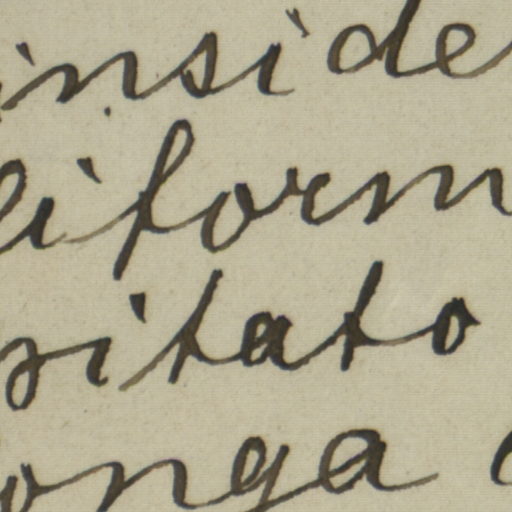 inside
liform
sitato
onga